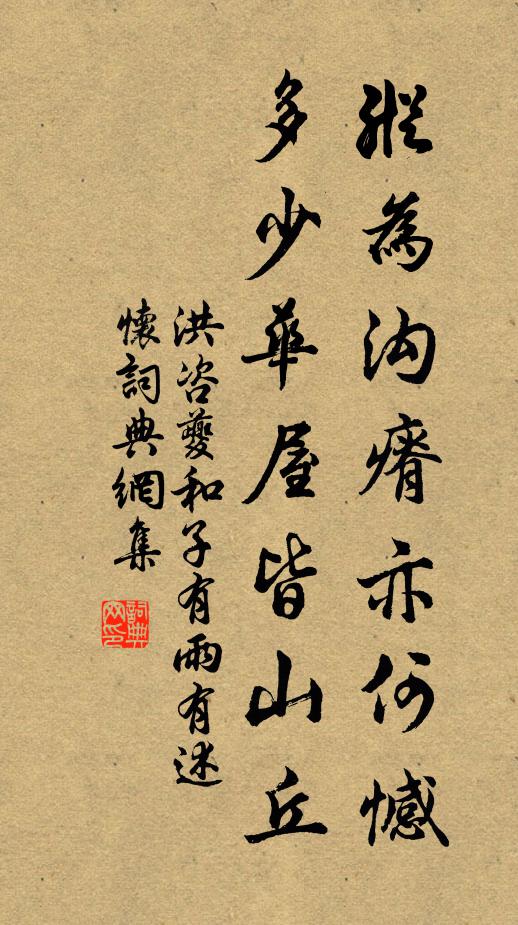 縱為沟瘠亦何憾
多少華屋皆山丘
洪咨夔和子有雨有述
懷詞典網集
詞典
网印